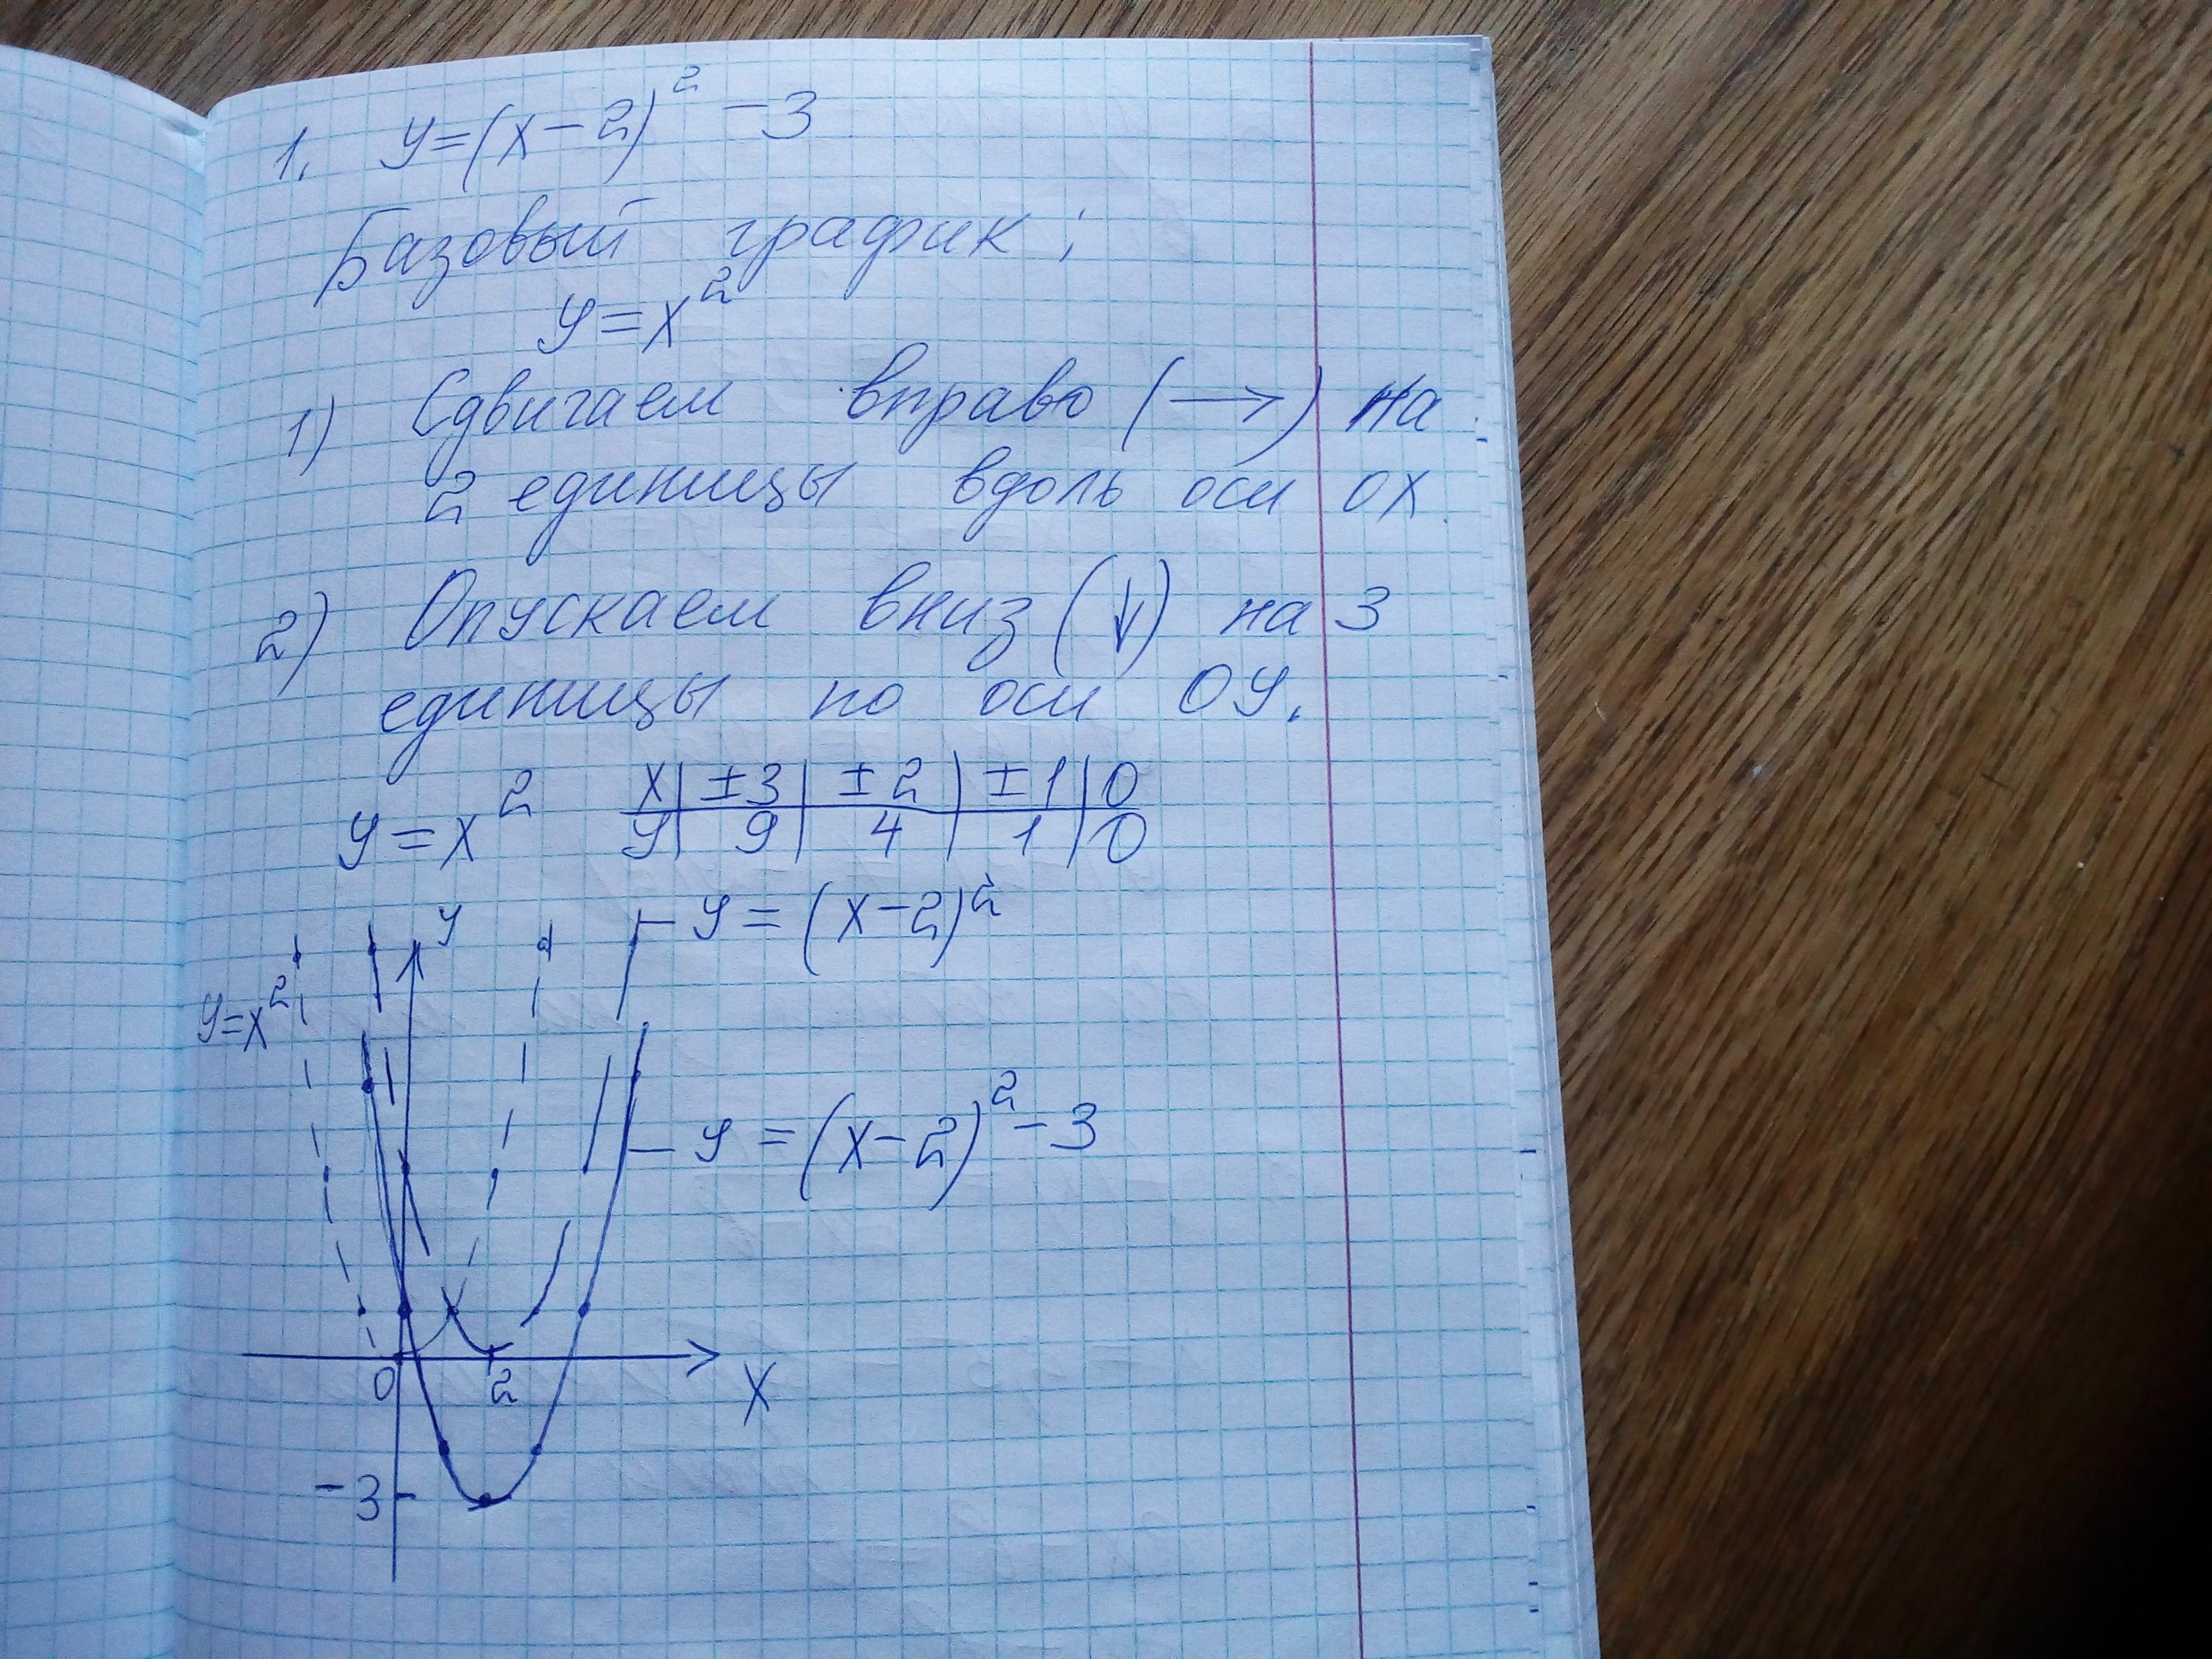 1. y=(x-2)² -3
Базовый график:
y=x²
1) Сдвигаем вправо (→) на
2 единицы вдоль оси OX.
2) Опускаем вниз (↓) на 3
единицы по оси OY.
y=x² x | ±3 | ±2 | ±1 | 0
y | 9 | 4 | 1 | 0
y = (x-2)²
y
y=x²
y = (x-2)² -3
0 2 X
-3